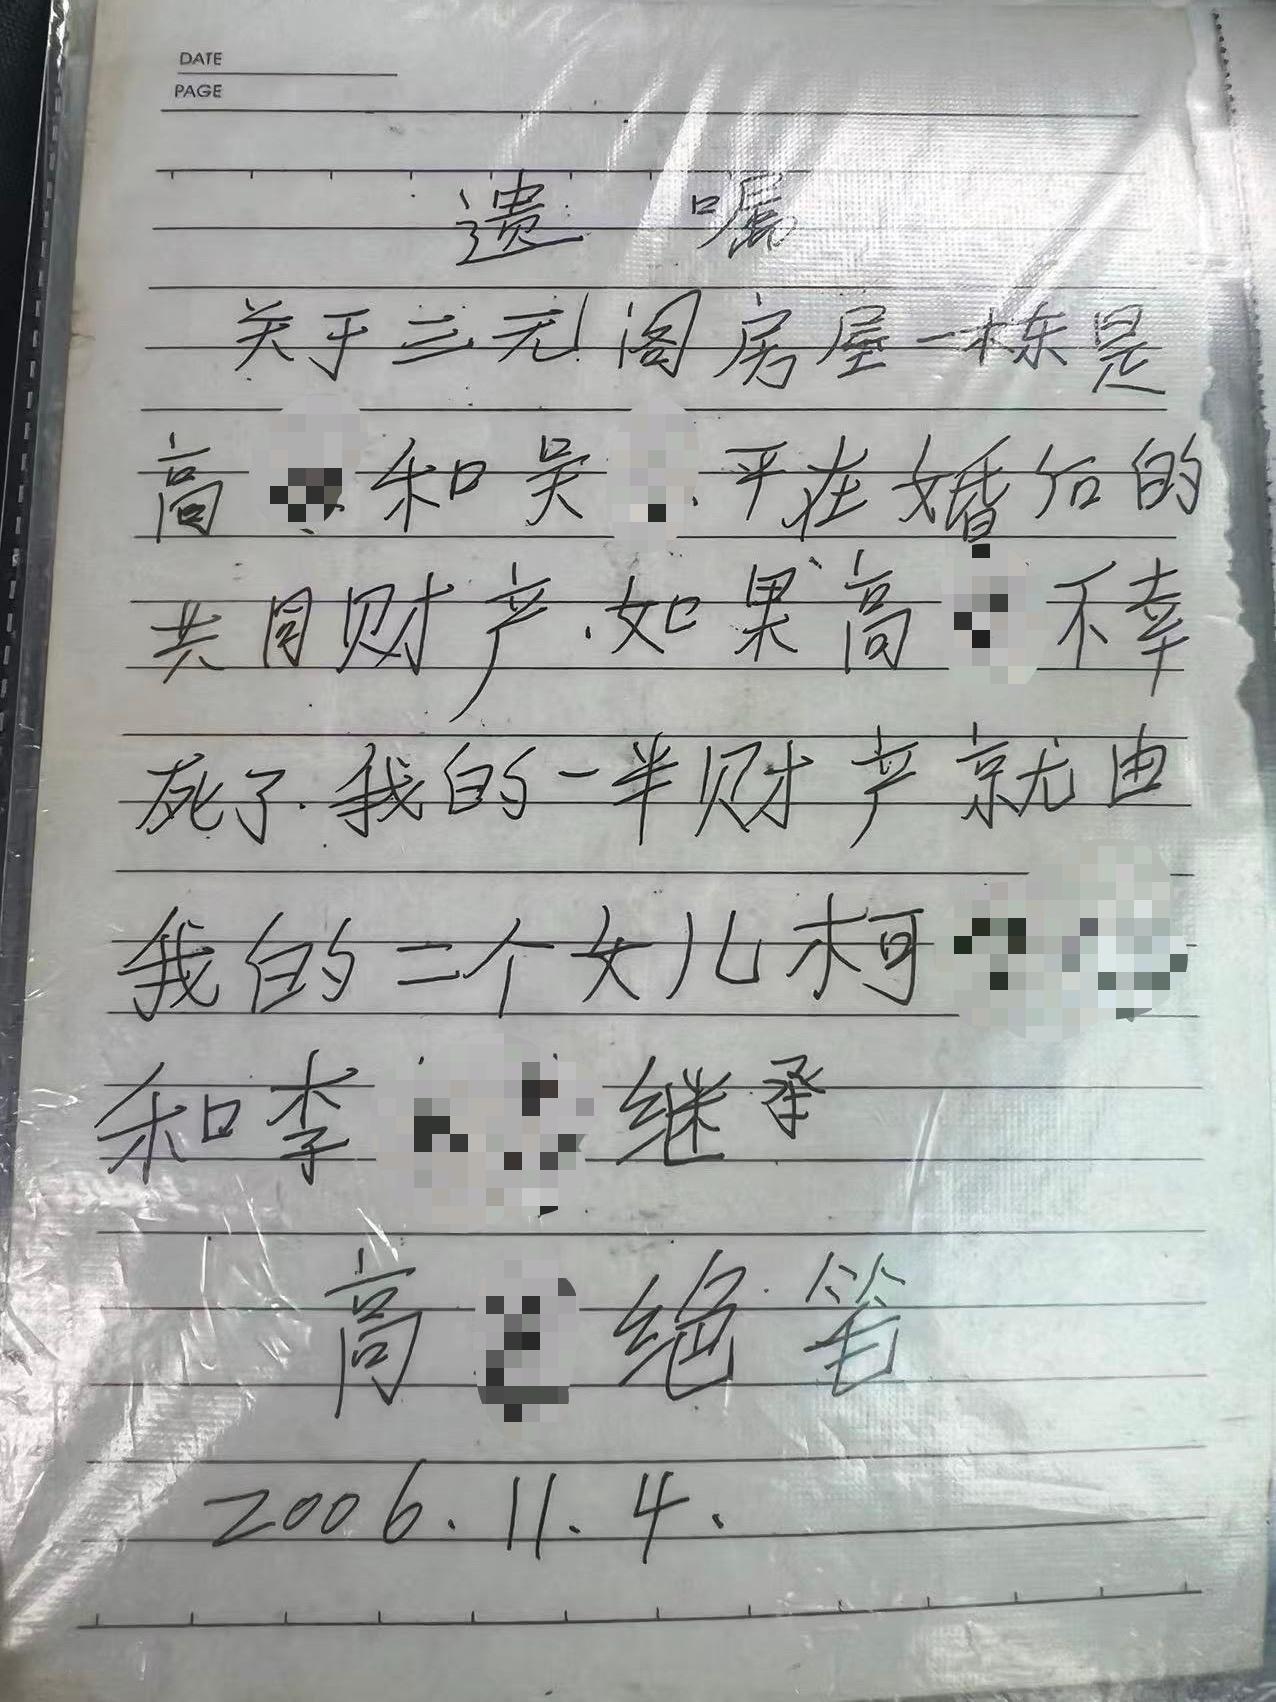 DATE
PAGE
遗 嘱
关于三元阁房屋一栋是
高 和吴 平在婚后的
共同财产.如果高 不幸
死了.我的一半财产就由
我的二个女儿柯
和李 继承
高 绝笔
2006.11.4.